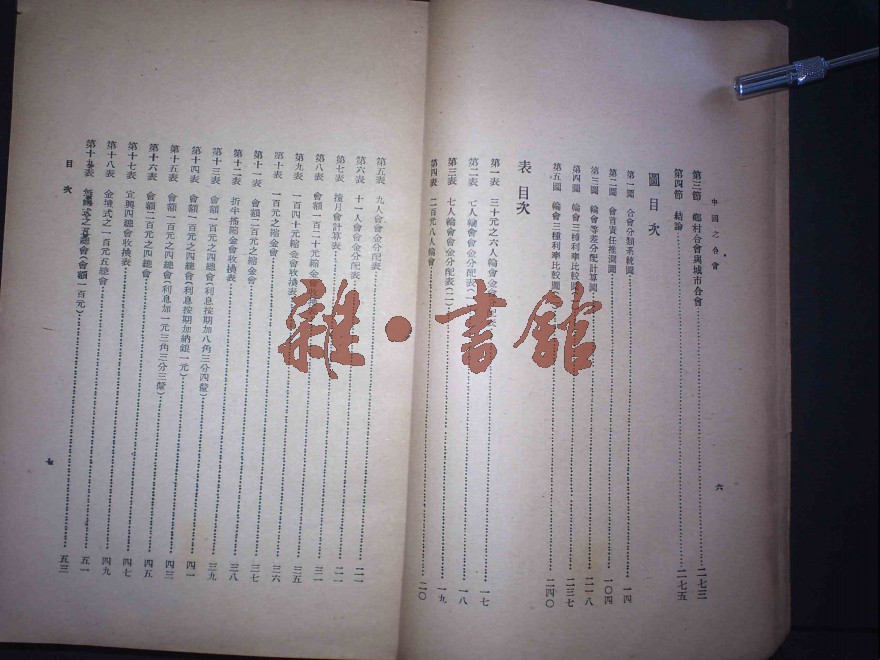 中國之合會
六
第三節 鄉村合會與城市合會 一七三
第四節 結論 一七五
圖目次
第一圖 合會分類系統圖 一四
第二圖 會首責任推測圖 一〇四
第三圖 輪會等差分配計算圖 二一八
第四圖 輪會三種利率比較圖 二三七
第五圖 輪會三種利率比較圖 二四〇
表目次
第一表 三十元之六人輪會會金分配表 一七
第二表 七人輪會會金分配表(一) 一八
第三表 七人輪會會金分配表(二) 一九
第四表 二百元八人輪會 二〇
第五表 九人會會金分配表 二一
第六表 十一人會會金分配表 二一
第七表 攤月會計算表 二一
第八表 會額一百二十元縮金會 三一
第九表 一百四十元縮金會收換表 三五
第十表 一百元之縮金會 三六
第十一表 會額二百元之縮金會 三七
第十二表 折半搖縮金會收換表 三八
第十三表 會額一百元之四總會(利息按期加八角三分四釐) 三九
第十四表 會額一百元之四總會(利息按期加納銀一元) 四一
第十五表 會額一百元之四總會(利息加一元三角三分三釐) 四三
第十六表 會額二百元之四總會 四五
第十七表 宜興四總會收換表 四七
第十八表 金壇式之一百元五總會 四九
第十九表 無錫式之五總會(會額一百元) 五一
五三
目次
七
雜·書館